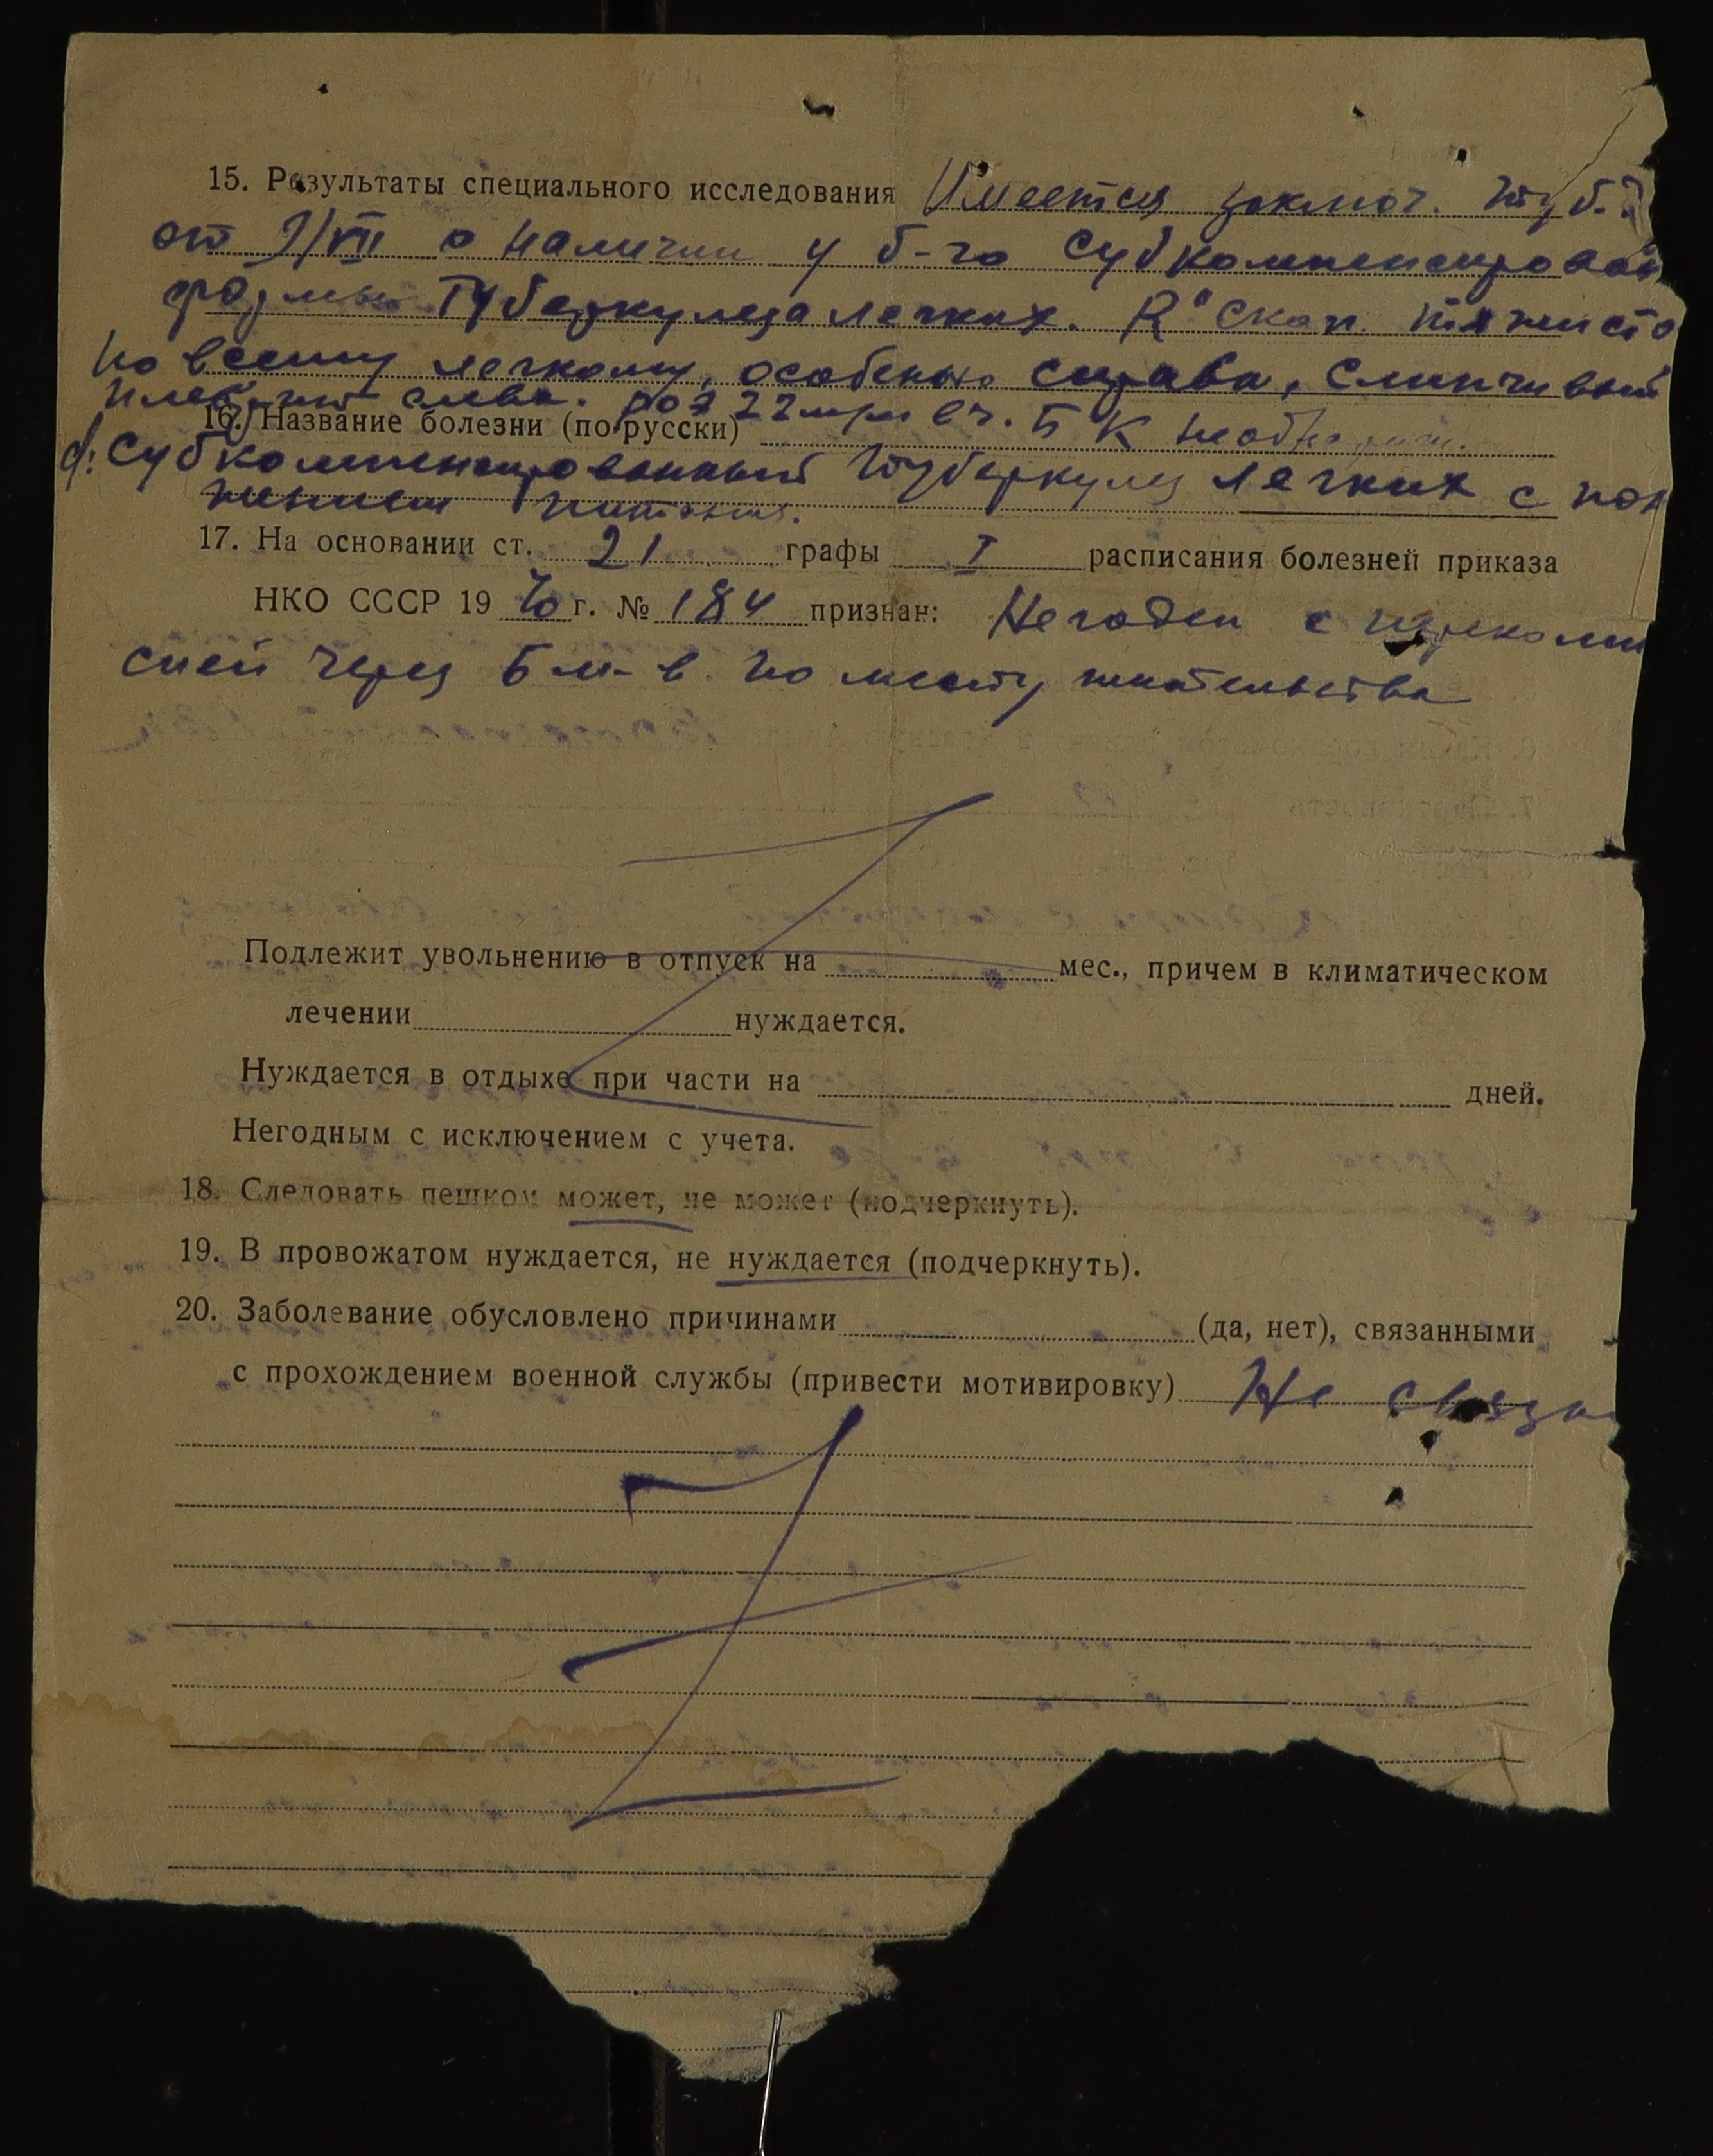 15. Результаты специального исследования Имеется заключ. туб.
от 9/VII о наличии у б-го субкомпенсирован
формы туберкулеза легких. R° скоп. тяжисто
по всему легкому, особенно справа, слипчивый
плеврит слева. роэ 22 м/м в ч. БК не обнаруж.
16. Название болезни (по-русски)
d: Субкомпенсированный туберкулез легких с пон
жением питания.
17. На основании ст. 21 графы I расписания болезней приказа
НКО СССР 19 40 г. № 184 признан: Негоден с переком
сией через 6 м-в по месту жительства
Подлежит увольнению в отпуск на мес., причем в климатическом
лечении нуждается.
Нуждается в отдыхе при части на дней.
Негодным с исключением с учета.
18. Следовать пешком может, не может (подчеркнуть).
19. В провожатом нуждается, не нуждается (подчеркнуть).
20. Заболевание обусловлено причинами (да, нет), связанными
с прохождением военной службы (привести мотивировку) Не связа